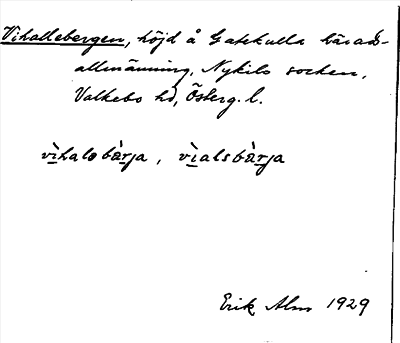 Vihallebergen, höjd å Gatekulla härads-
allmänning, Nykils socken,
Valkebo hd, Österg. l.
vìhalebàrja, vìalsbàrja
Erik Alm 1929